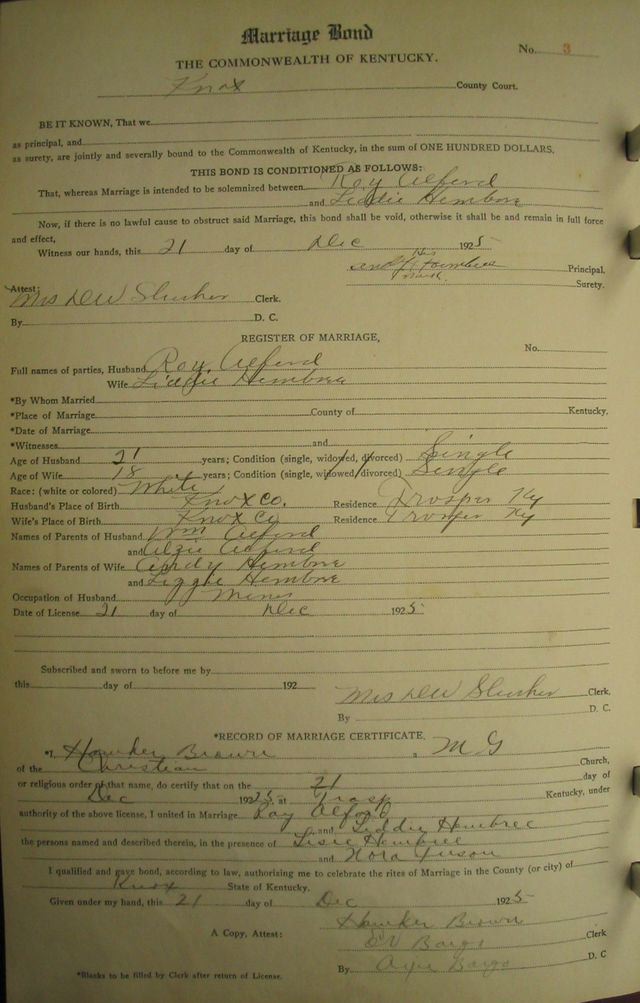 Marriage Bond
No. 3
THE COMMONWEALTH OF KENTUCKY.
Knox County Court.
BE IT KNOWN, That we
as principal, and
as surety, are jointly and severally bound to the Commonwealth of Kentucky, in the sum of ONE HUNDRED DOLLARS.
THIS BOND IS CONDITIONED AS FOLLOWS:
That, whereas Marriage is intended to be solemnized between Roy Alford
and Liddie Hembree
Now, if there is no lawful cause to obstruct said Marriage, this bond shall be void, otherwise it shall and remain in full force
and effect,
Witness our hands, this 21 day of Dec 1925
his
Hembree Principal,
mark Surety.
Attest:
Mrs D W Slusher Clerk.
By D. C.
REGISTER OF MARRIAGE,
No.
Full names of parties, Husband Roy Alford
Wife Liddie Hembree
*By Whom Married
*Place of Marriage County of Kentucky.
*Date of Marriage
*Witnesses and
Age of Husband 21 years; Condition (single, widowed, divorced) Single
Age of Wife 18 years; Condition (single, widowed, divorced) Single
Race: (white or colored) White
Husband's Place of Birth Knox Co. Residence Trosper Ky
Wife's Place of Birth Knox Co Residence Trosper Ky
Names of Parents of Husband Wm Alford
and Alford
Names of Parents of Wife Hembree
and Lizzie Hembree
Occupation of Husband Miner
Date of License 21 day of Dec 1925
Subscribed and sworn to before me by
this day of 192
Mrs D W Slusher Clerk,
By D. C.
*RECORD OF MARRIAGE CERTIFICATE.
*I, Hawker Brown a M G
of the Christian Church,
or religious order of that name, do certify that on the 21 day of
Dec 1925 at Trosp Kentucky, under
authority of the above license, I united in Marriage Roy Alford
and Liddie Hembree
the persons named and described therein, in the presence of Hembree
and Nora
I qualified and gave bond, according to law, authorizing me to celebrate the rites of Marriage in the County (or city) of
Knox State of Kentucky.
Given under my hand, this 21 day of Dec 1925
Hawker Brown
A Copy, Attest: Bargo Clerk
By Bargo D. C
*Blanks to be filled by Clerk after return of License.